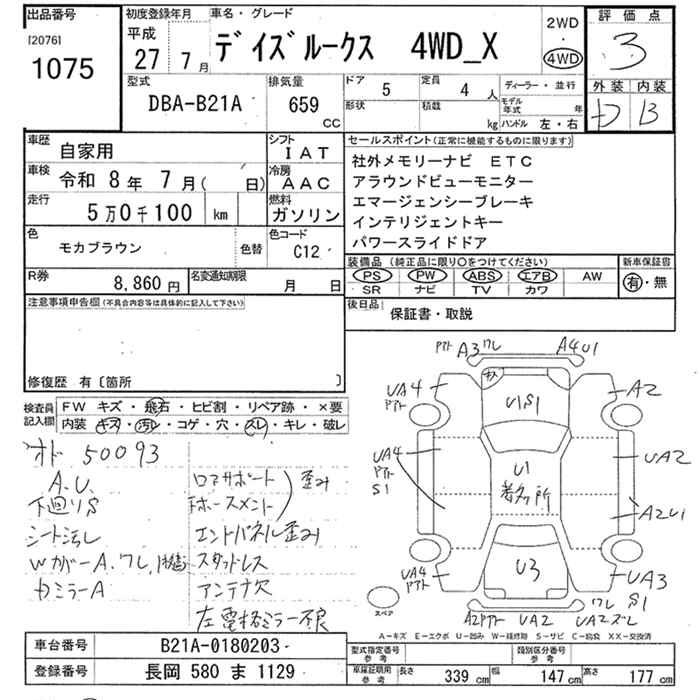 出品番号
[2076]
1075
初度登録年月
平成
27 7月
車名・グレード
デイズルークス 4WD_X
2WD
・
4WD
評価点
3
外装 内装
D B
型式
DBA-B21A
排気量
659
CC
ドア 5
形状
定員 4 人
積載 kg
ディーラー・並行
モデル年式 年
ハンドル 左・右
車歴
自家用
シフト
IAT
車検
令和 8年 7月( 日)
冷房
AAC
走行
5万0千100 km
燃料
ガソリン
色
モカブラウン
色替
色コード
C12
R券
8,860 円
名変通知期限
月 日
セールスポイント(正常に機能するものに限ります)
社外メモリーナビ ETC
アラウンドビューモニター
エマージェンシーブレーキ
インテリジェントキー
パワースライドドア
装備品 (純正品に限り〇をつけてください)
新車保証書
PS PW ABS エアB AW
有・無
SR ナビ TV カワ
後日品
保証書・取説
注意事項申告欄(不具合内容等は具体的に記入して下さい)
修復歴 有〔箇所 〕
検査員
記入欄
FW キズ・飛石・ヒビ割・リペア跡・×要
内装・キズ・汚レ・コゲ・穴・スレ・キレ・破レ
オド 50093
A.U.
下廻りS
シート汚し
WカバーA.ワレ,
カミラーA
ロアサポート
ホースメント
歪み
エンドパネル歪み
スタッドレス
アンテナ欠
左電格ミラー不良
アト A3ワレ A4U1
UA4 アト
A2
U1S1
UA4
アト
S1
U1
着多所
UA2
A2U1
UA4
アト
U3
UA3
S1
スペア
A2アト UA2 ワレ UA2ズレ
A－キズ E－エクボ U－凹み W－補修跡 S－サビ C－腐食 XX－交換済
車台番号
B21A-0180203
登録番号
長岡 580 ま 1129
型式指定番号
参考
類別区分番号
参考
車庫証明用
参考
長さ 339 cm 幅 147 cm 高さ 177 cm